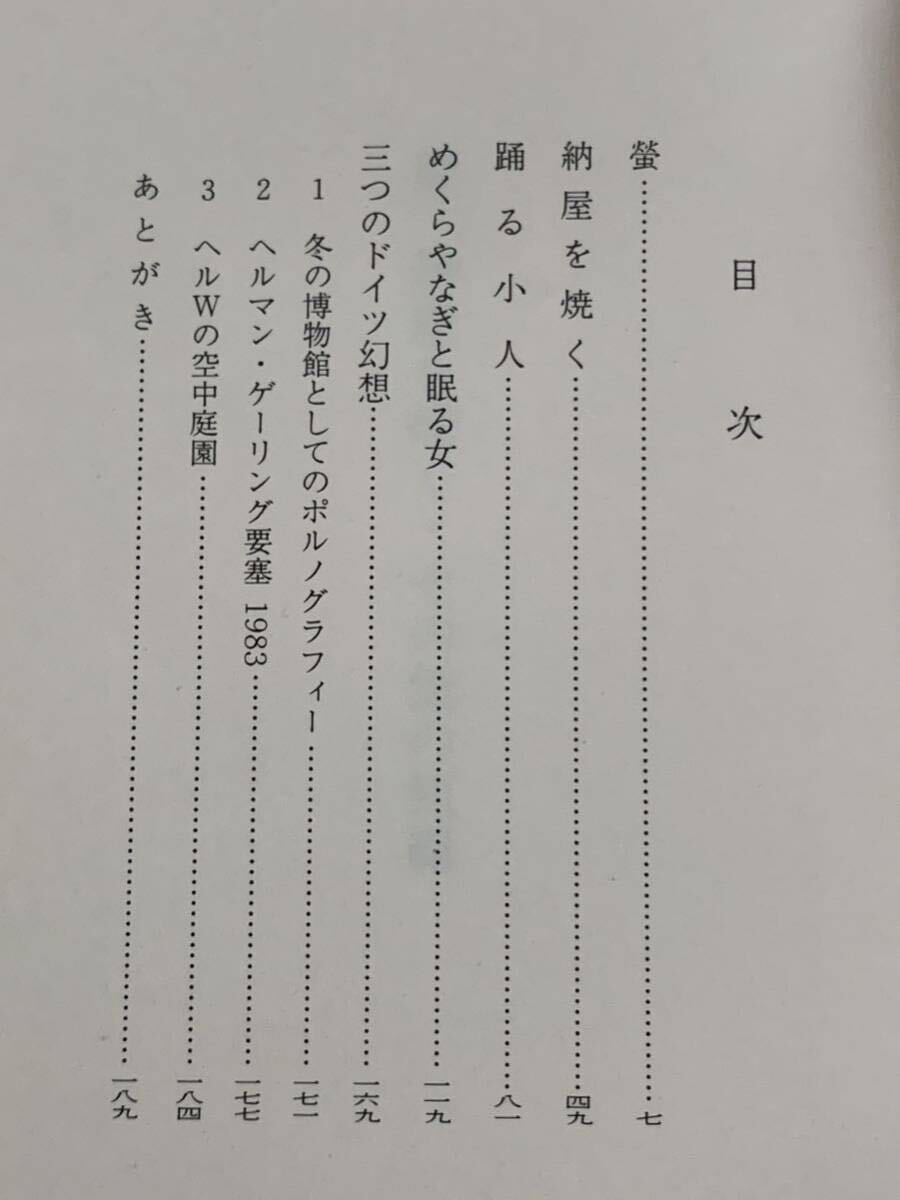 目次
螢……七
納屋を焼く……四九
踊る小人……八一
めくらやなぎと眠る女……一一九
三つのドイツ幻想……一六九
1 冬の博物館としてのポルノグラフィー……一七一
2 ヘルマン・ゲーリング要塞 1983……一七七
3 ヘルWの空中庭園……一八四
あとがき……一八九